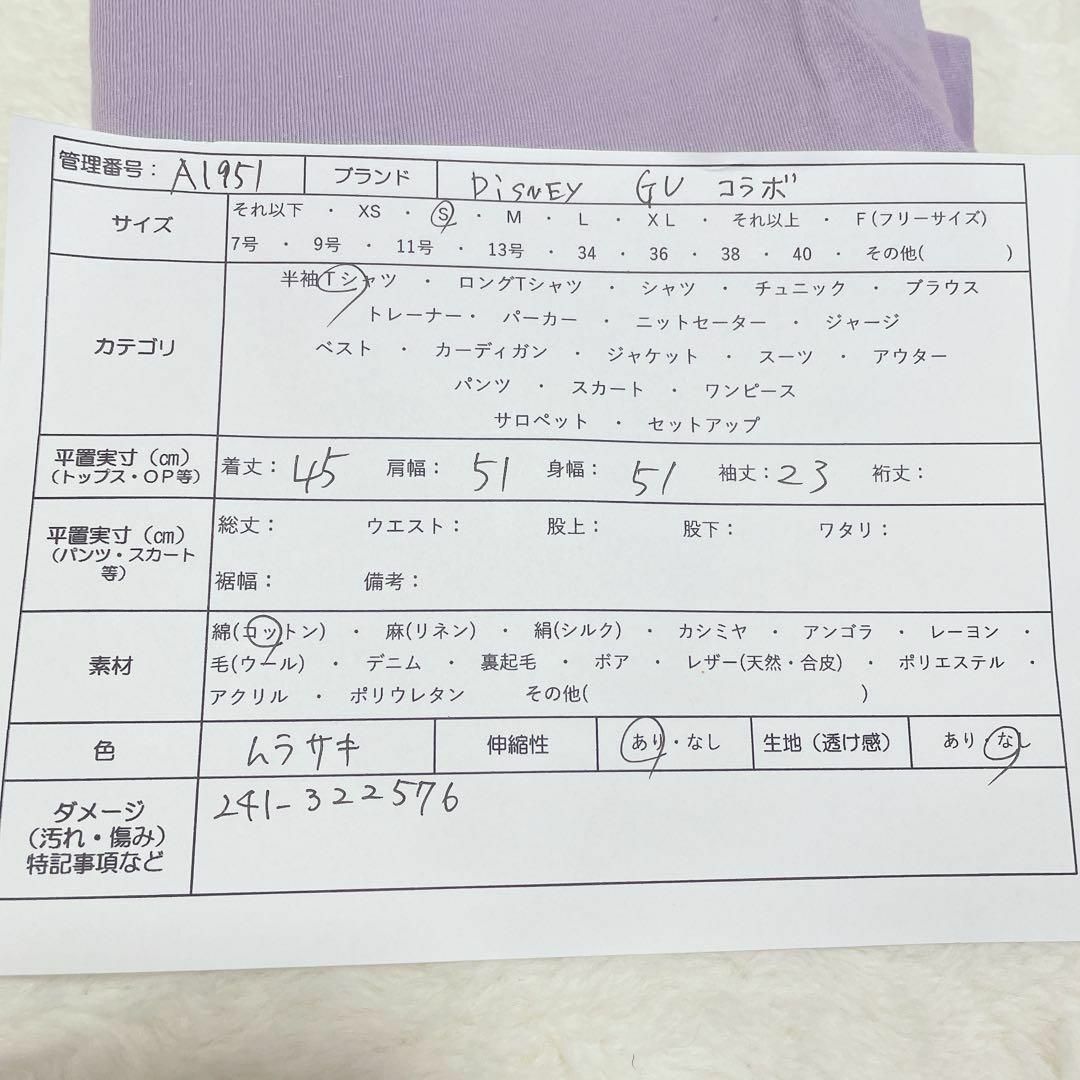 管理番号： A1951 ブランド DiSNEY GU コラボ
サイズ それ以下 ・ XS ・ S ・ M ・ L ・ XL ・ それ以上 ・ F(フリーサイズ)
7号 ・ 9号 ・ 11号 ・ 13号 ・ 34 ・ 36 ・ 38 ・ 40 ・ その他( )
カテゴリ 半袖Tシャツ ・ ロングTシャツ ・ シャツ ・ チュニック ・ ブラウス
トレーナー ・ パーカー ・ ニットセーター ・ ジャージ
ベスト ・ カーディガン ・ ジャケット ・ スーツ ・ アウター
パンツ ・ スカート ・ ワンピース
サロペット ・ セットアップ
平置実寸（㎝）
（トップス・OP等） 着丈： 45 肩幅： 51 身幅： 51 袖丈：23 裄丈：
平置実寸（㎝）
（パンツ・スカート
等） 総丈： ウエスト： 股上： 股下： ワタリ：
裾幅： 備考：
素材 綿(コットン) ・ 麻(リネン) ・ 絹(シルク) ・ カシミヤ ・ アンゴラ ・ レーヨン ・
毛(ウール) ・ デニム ・ 裏起毛 ・ ボア ・ レザー(天然・合皮) ・ ポリエステル ・
アクリル ・ ポリウレタン その他( )
色 ムラサキ 伸縮性 あり・なし 生地（透け感） あり・なし
ダメージ
（汚れ・傷み）
特記事項など 241-322576